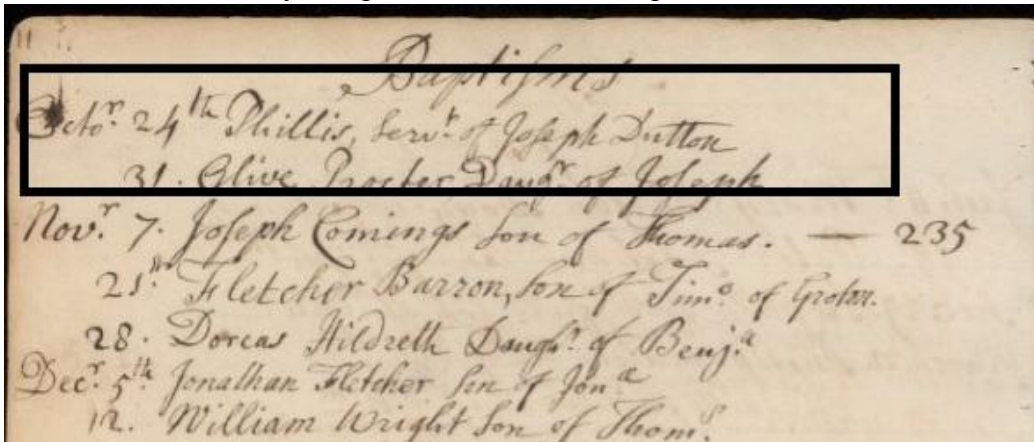 Baptisms
Octor. 24th Phillis, Servt. of Joseph Dutton
31. Olive Procter Daugr. of Joseph
Novr. 7. Joseph Comings Son of Thomas. — 235
21st. Fletcher Barron, Son of Timo. of Groton.
28. Dorcas Hildreth Daughr. of Benja.
Decr. 5th. Jonathan Fletcher Son of Jona
12. William Wright Son of Thoms.